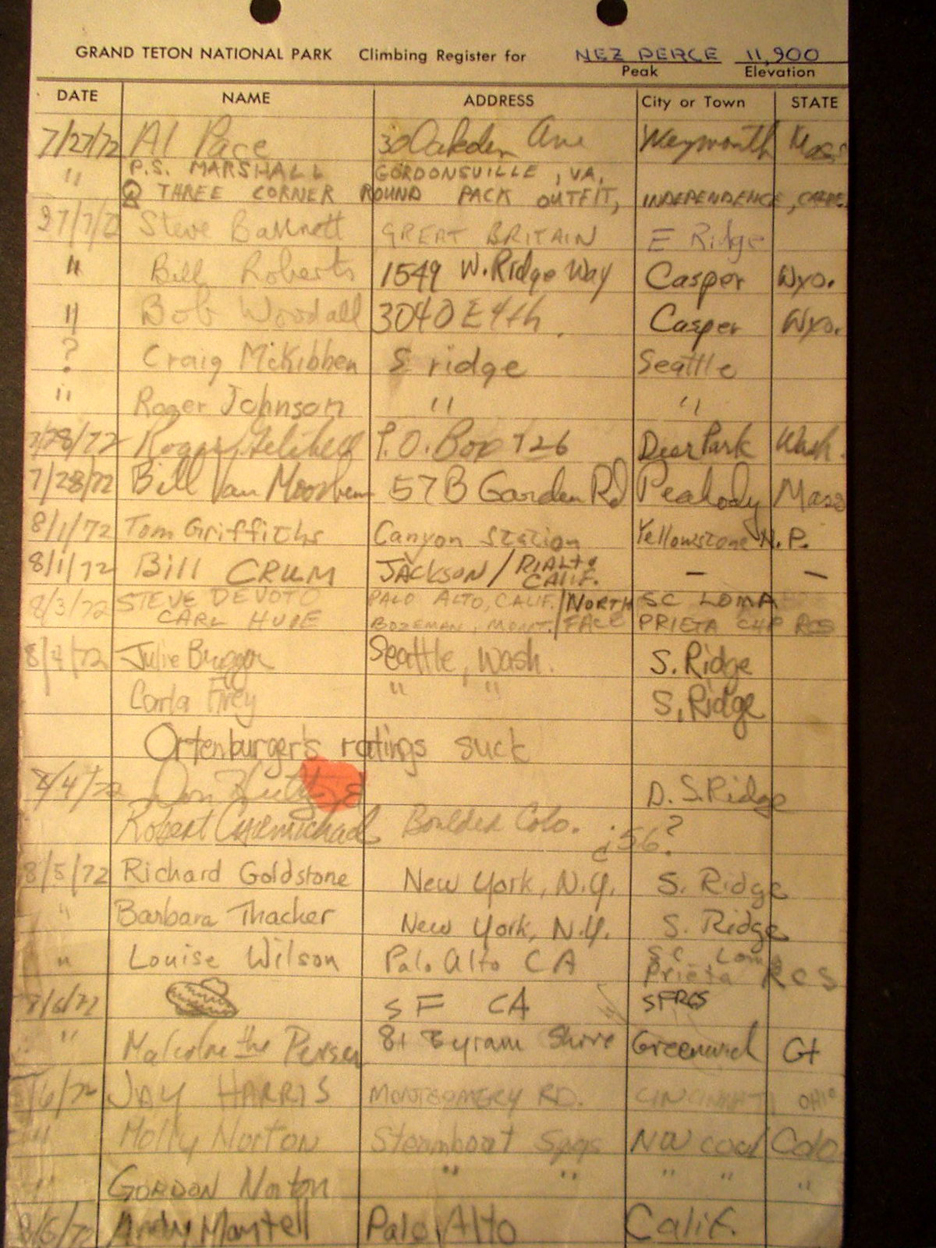 GRAND TETON NATIONAL PARK Climbing Register for NEZ PERCE 11,900
Peak Elevation
DATE NAME ADDRESS City or Town STATE
7/27/72 Al Pace 30 Oakden Ave Weymouth Mass
" P.S. MARSHALL GORDONSVILLE, VA,
THREE CORNER ROUND PACK OUTFIT, INDEPENDENCE,
Steve GREAT BRITAIN E Ridge
" Bill Roberts 1549 W. Ridge Way Casper Wyo.
" Bob Woodall 3040 E 4th. Casper Wyo.
? Craig McKibben S ridge Seattle
" Roger Johnson " "
7/28/72 Roger P.O. Box 726 Deer Park Wash.
7/28/72 Bill Van 57B Garden Rd Peabody Mass
8/1/72 Tom Griffiths Canyon Station Yellowstone N.P.
8/1/72 Bill CRUM JACKSON / RIALTO CALIF. — —
8/3/72 STEVE DEVOTO PALO ALTO, CALIF. / NORTH SC LOMA
CARL BOZEMAN, MONT. / FACE PRIETA CHP RCS
8/4/72 Julie Brugger Seattle, Wash. S. Ridge
Carla Firey " " S. Ridge
Ortenburger's ratings suck
8/4/72 Don D. S. Ridge
Robert Carmichael Boulder Colo. ¿56?
8/5/72 Richard Goldstone New York, N.Y. S. Ridge
" Barbara Thacker New York, N.Y. S. Ridge
" Louise Wilson Palo Alto CA SC Loma Prieta RCS
8/6/72 SF CA SFRCS
" Malcolm the 81 Byram Shore Greenwich Ct
8/6/72 JAY HARRIS MONTGOMERY RD. CINCINNATI OHIO
" Molly Norton Steamboat Spgs Colo
" GORDON Norton " " " " "
8/6/72 Andy Mantell Palo Alto Calif.